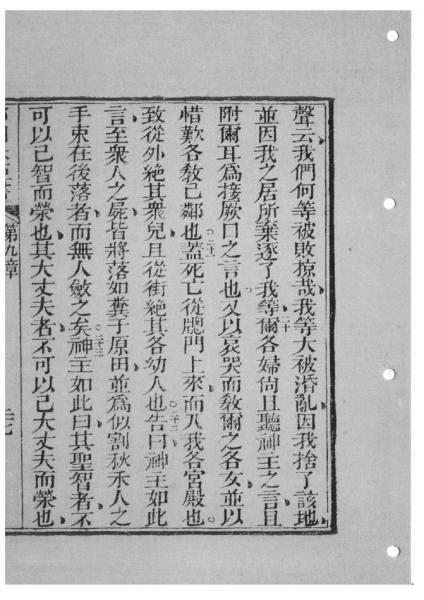 聲云我們何等被敗掠哉我等大被溷亂因我捨了該地
並因我之居所棄逐了我等○二十爾各婦尙且聽神主之言且
附爾耳爲接厥口之言也又以哀哭而敎爾之各女並以
惜歎各敎己鄰也○二十一蓋死亡從牕門上來而入我各宮殿也
致從外絶其衆兒且從街絶其各幼人也○二十二告曰神主如此
言至衆人之屍皆將落如糞于原田並爲似割秋禾人之
手束在後落者而無人斂之矣○二十三神主如此曰其聖智者不
可以己智而榮也其大丈夫者不可以己大丈夫而榮也
第九章